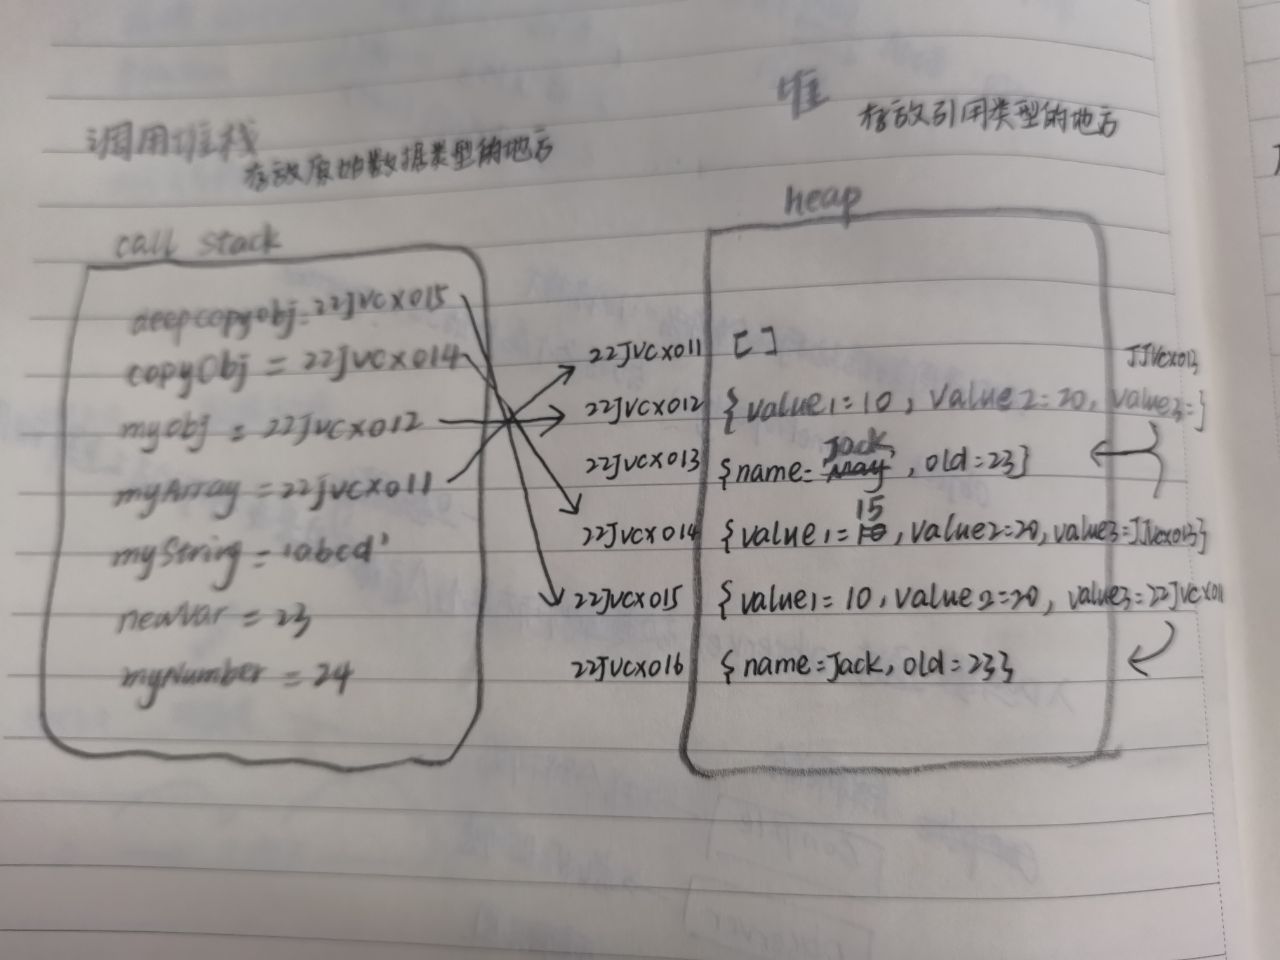 堆
存放引用类型的地方
调用堆栈
存放原始数据类型的地方
heap
call stack
deepcopyobj=22JVCX015
copyObj = 22JVCX014
myobj = 22JVCX012
myArray = 22JVCX011
myString = 'abcd'
newVar = 23
myNumber = 24
22JVCX011 []
JJVCX013
22JVCX012 {value1=10, value2=20, value3=}
Jack
22JVCX013 {name=May, old=23}
15
22JVCX014 {value1=10, value2=20, value3=JJVCX013}
22JVCX015 {value1=10, value2=20, value3=22JVCX01
22JVCX016 {name=Jack, old=23}